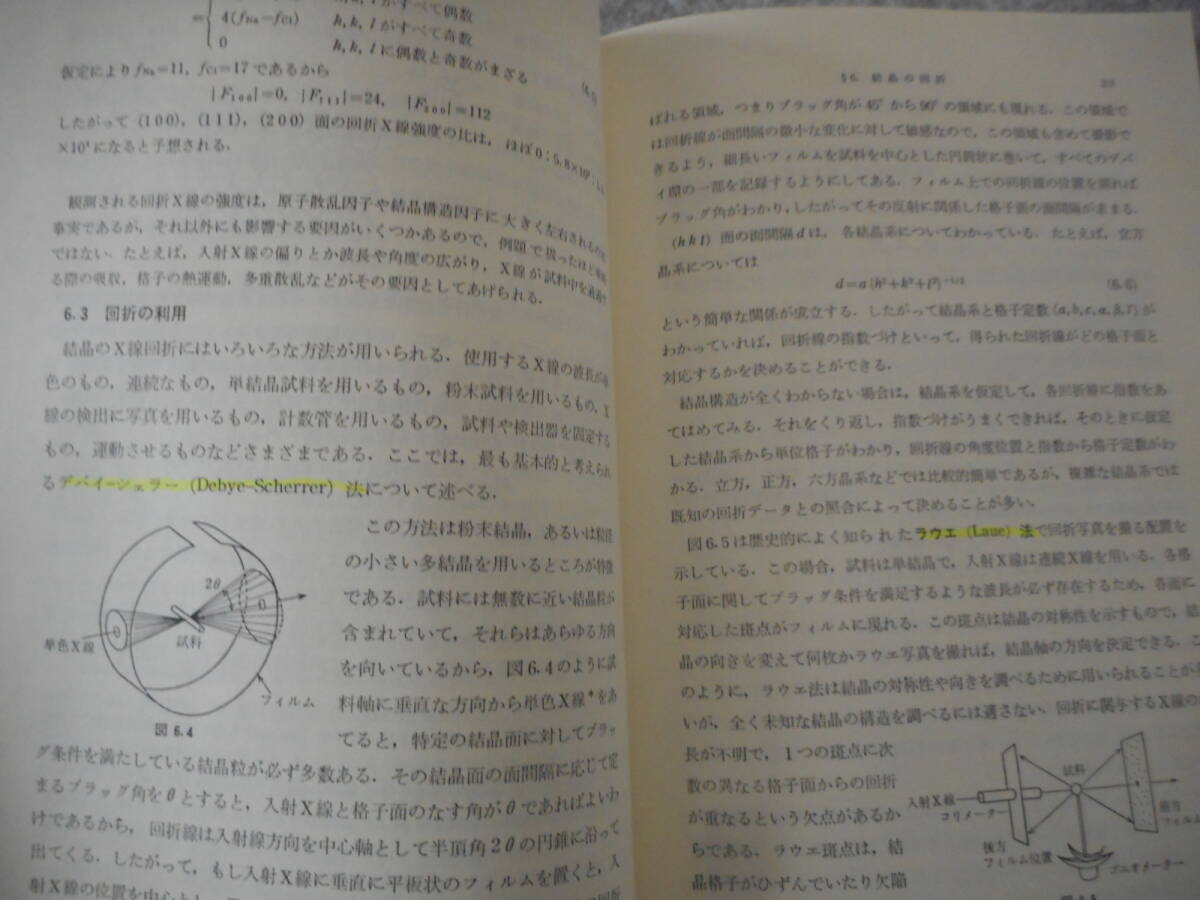 h, k, l がすべて偶数
4(fNa−fCl) h, k, l がすべて奇数
0 h, k, l に偶数と奇数がまざる
仮定により fNa=11, fCl=17 であるから
|F100|=0, |F111|=24, |F200|=112
したがって (100), (111), (200) 面の回折X線強度の比は, ほぼ 0 : 5.8×10² :
×10⁴ になると予想される.
観測される回折X線の強度は, 原子散乱因子や結晶構造因子に大きく左右されるのは
事実であるが, それ以外にも影響する要因がいくつかあるので, 例題で扱ったほど
ではない. たとえば, 入射X線の偏りとか波長や角度の広がり, X線が試料中を通過す
る際の吸収, 格子の熱運動, 多重散乱などがその要因としてあげられる.
6.3 回折の利用
結晶のX線回折にはいろいろな方法が用いられる. 使用するX線の波長が単
色のもの, 連続なもの, 単結晶試料を用いるもの, 粉末試料を用いるもの, X
線の検出に写真を用いるもの, 計数管を用いるもの, 試料や検出器を固定する
もの, 運動させるものなどさまざまである. ここでは, 最も基本的と考えられ
るデバイ-シェラー (Debye-Scherrer) 法について述べる.
2θ
0
試料
単色X線
フィルム
図 6.4
この方法は粉末結晶, あるいは粒径
の小さい多結晶を用いるところが特徴
である. 試料には無数に近い結晶粒が
含まれていて, それらはあらゆる方向
を向いているから, 図6.4のように試
料軸に垂直な方向から単色X線*をあ
てると, 特定の結晶面に対してブラッ
グ条件を満たしている結晶粒が必ず多数ある. その結晶面の面間隔に応じて定
まるブラッグ角をθとすると, 入射X線と格子面のなす角がθであればよいわ
けであるから, 回折線は入射線方向を中心軸として半頂角2θの円錐に沿って
出てくる. したがって, もし入射X線に垂直に平板状のフィルムを置くと, 入
射X線の位置を中心とし
§6. 結晶の回折
ばれる領域, つまりブラッグ角が 45° から 90° の領域にも現れる. この領域で
は回折線が面間隔の微小な変化に対して敏感なので, この領域も含めて撮影で
きるよう, 細長いフィルムを試料を中心とした円筒状に巻いて, すべてのデバ
イ環の一部を記録するようにしてある. フィルム上での回折線の位置を測れば
ブラッグ角がわかり, したがってその反射に関係した格子面の面間隔が求まる.
(h k l) 面の面間隔 d は, 各結晶系についてわかっている. たとえば, 立方
晶系については
d=a(h²+k²+l²)^−1/2 (6.6)
という簡単な関係が成立する. したがって結晶系と格子定数 (a, b, c, α, β, γ) が
わかっていれば, 回折線の指数づけといって, 得られた回折線がどの格子面と
対応するかを決めることができる.
結晶構造が全くわからない場合は, 結晶系を仮定して, 各回折線に指数をあ
てはめてみる. それをくり返し, 指数づけがうまくできれば, そのときに仮定
した結晶系から単位格子がわかり, 回折線の角度位置と指数から格子定数がわ
かる. 立方, 正方, 六方晶系などでは比較的簡単であるが, 複雑な結晶系では
既知の回折データとの照合によって決めることが多い.
図6.5は歴史的によく知られたラウエ (Laue) 法で回折写真を撮る配置を
示している. この場合, 試料は単結晶で, 入射X線は連続X線を用いる. 各格
子面に関してブラッグ条件を満足するような波長が必ず存在するため, 各面に
対応した斑点がフィルムに現れる. この斑点は結晶の対称性を示すもので, 結
晶の向きを変えて何枚かラウエ写真を撮れば, 結晶軸の方向を決定できる. こ
のように, ラウエ法は結晶の対称性や向きを調べるために用いられることが多
いが, 全く未知な結晶の構造を調べるには適さない. 回折に関与するX線の
長が不明で, 1つの斑点に次
数の異なる格子面からの回折
が重なるという欠点があるか
らである. ラウエ斑点は, 結
晶格子がひずんでいたり欠陥
試料
入射X線
コリメーター
後方
フィルム位置
前方
フィルム
ゴニオメーター